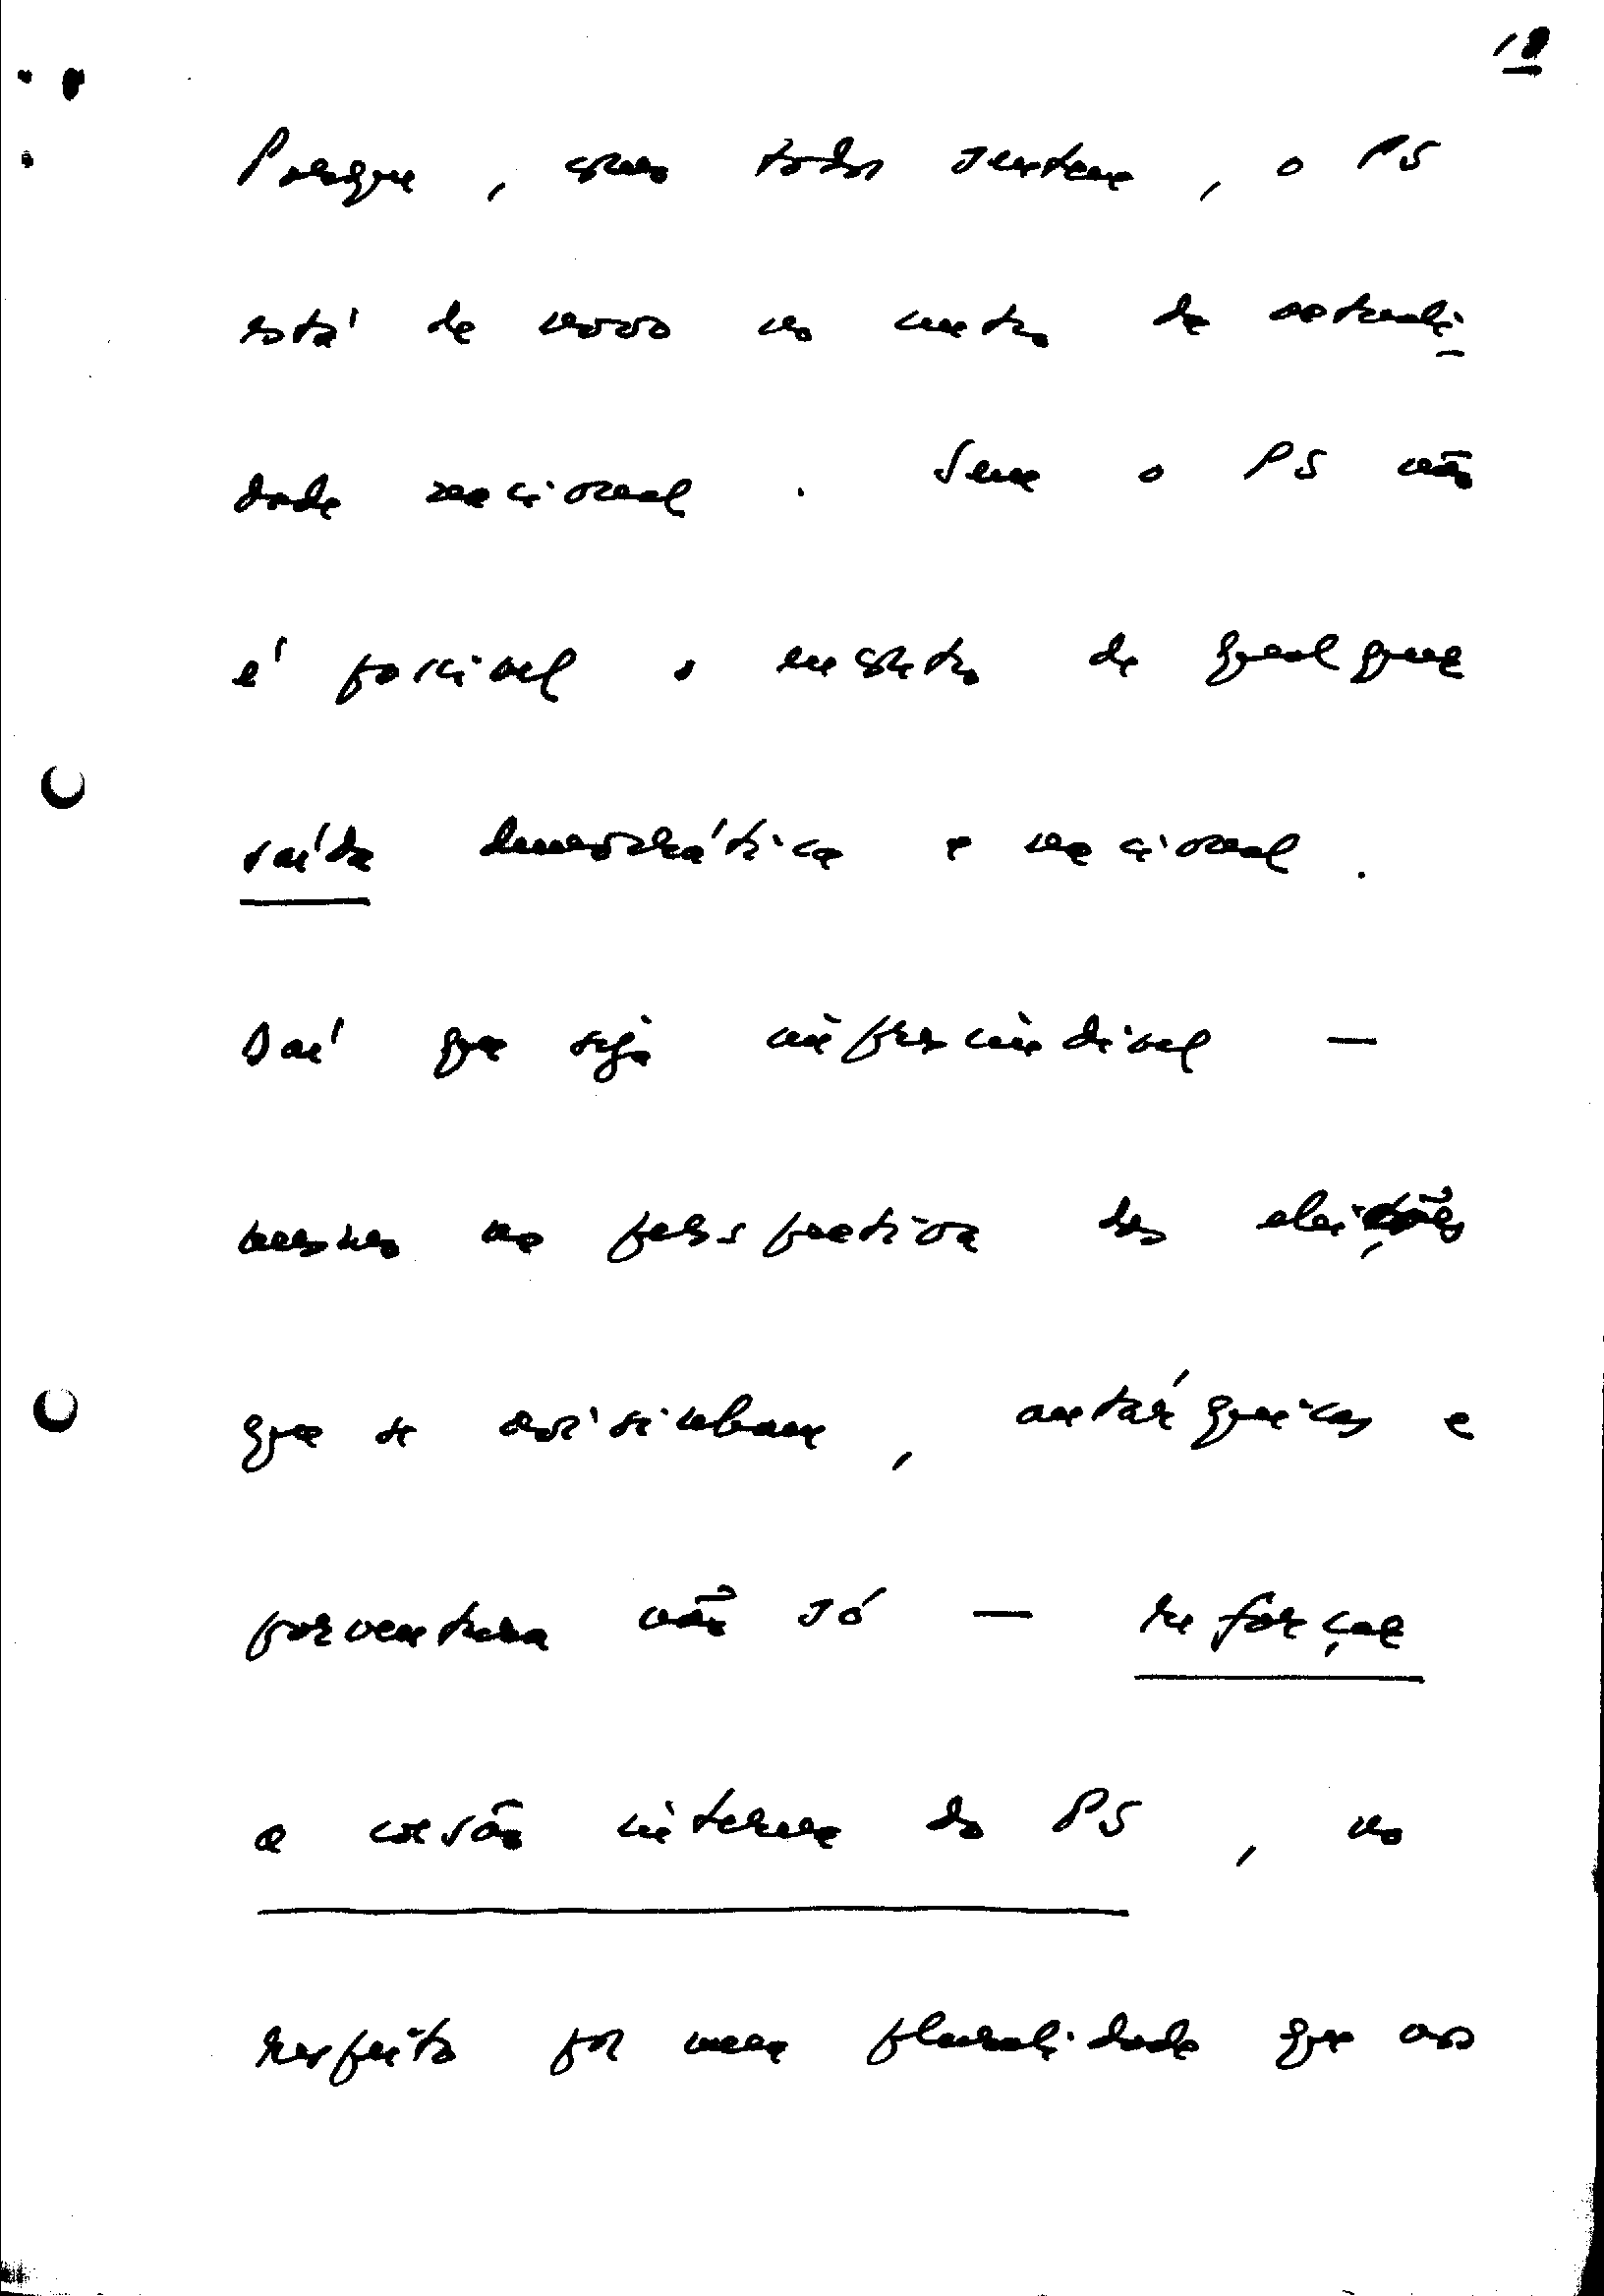 18
Porque, como todos sentem, o PS
está de novo no centro da actuali-
dade nacional. Sem o PS não
é possível o encontro de qualquer
saída democrática e nacional.
Daí que seja imprescindível —
mesmo na perspectiva das eleições
que se avizinham, autárquicas e
porventura não só — reforçar
a coesão interna do PS, no
respeito por uma pluralidade que nos